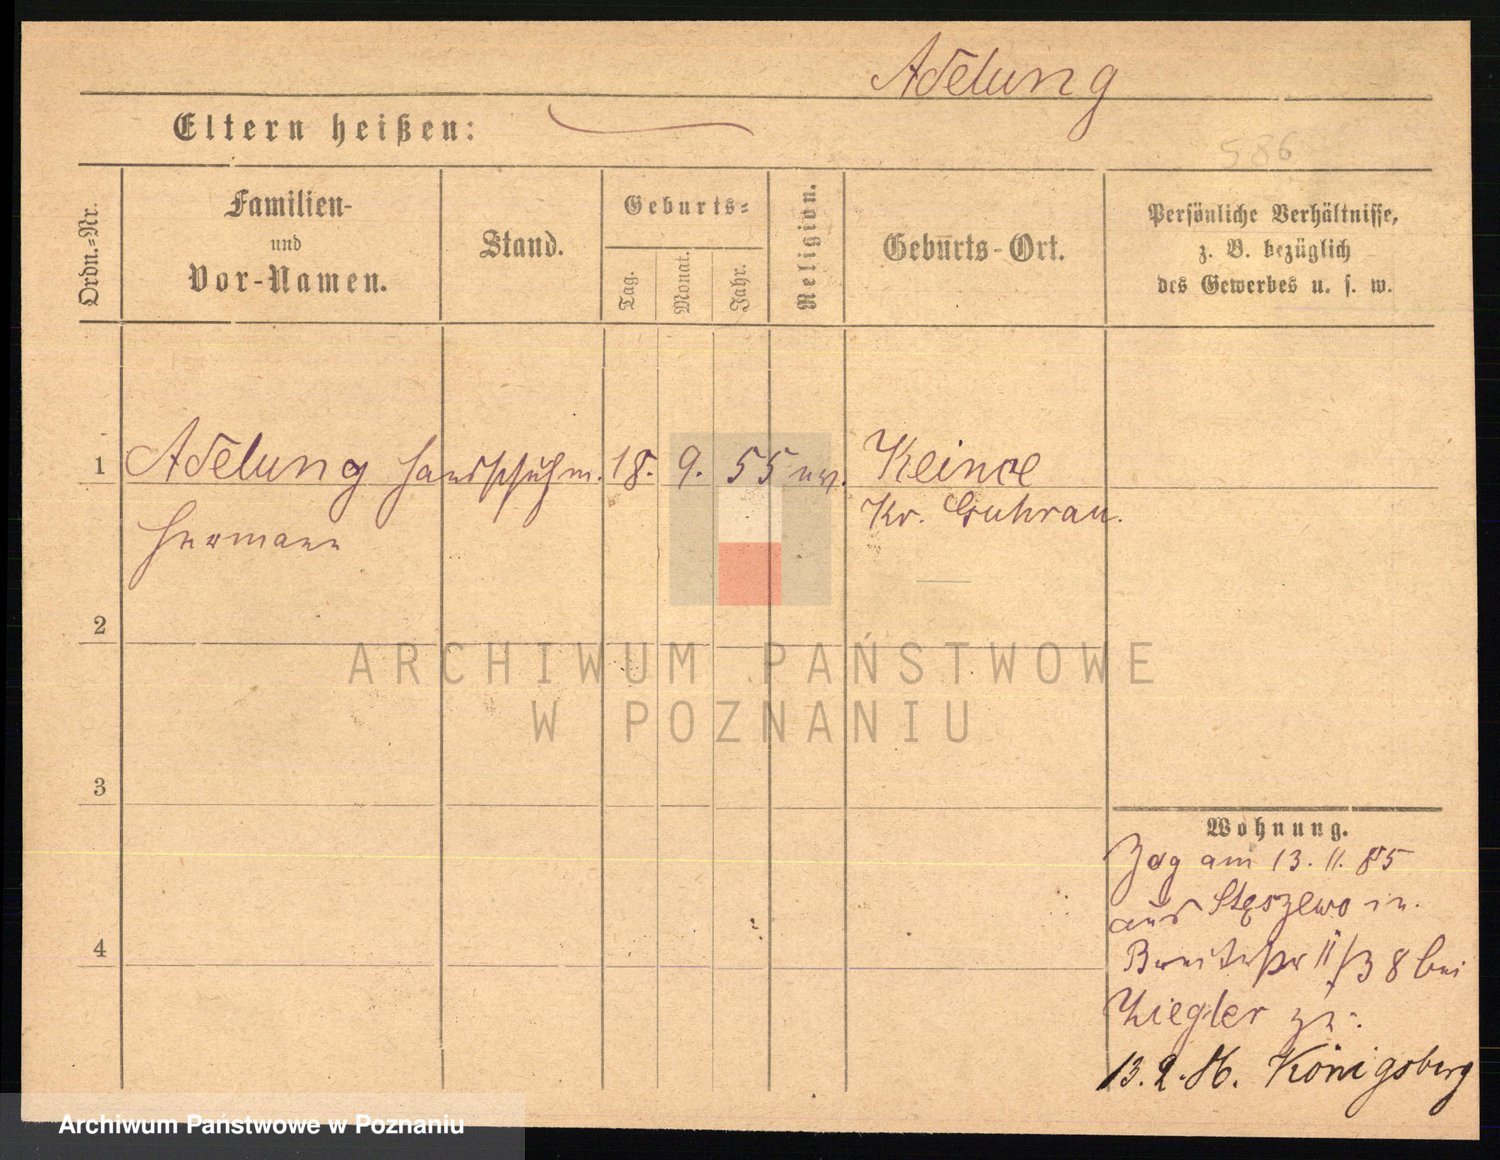 Adelung
Eltern heißen:
586
Ordn.-Nr.
Familien-
und
Vor-Namen.
Stand.
Geburts-
Tag.
Monat.
Jahr.
Religion.
Geburts-Ort.
Persönliche Verhältnisse,
z. B. bezüglich
des Gewerbes u. s. w.
1 Adelung Handschuhm. 18. 9. 55 ev. Keince
Hermann Kr. Guhrau.
2
ARCHIWUM PAŃSTWOWE
W POZNANIU
3
Wohnung.
Zog am 13. 11. 85
aus Stęszewo in
4
Breitestr 11/3 8 bei
Ziegler zu.
13. 2. 86. Königsberg
Archiwum Państwowe w Poznaniu